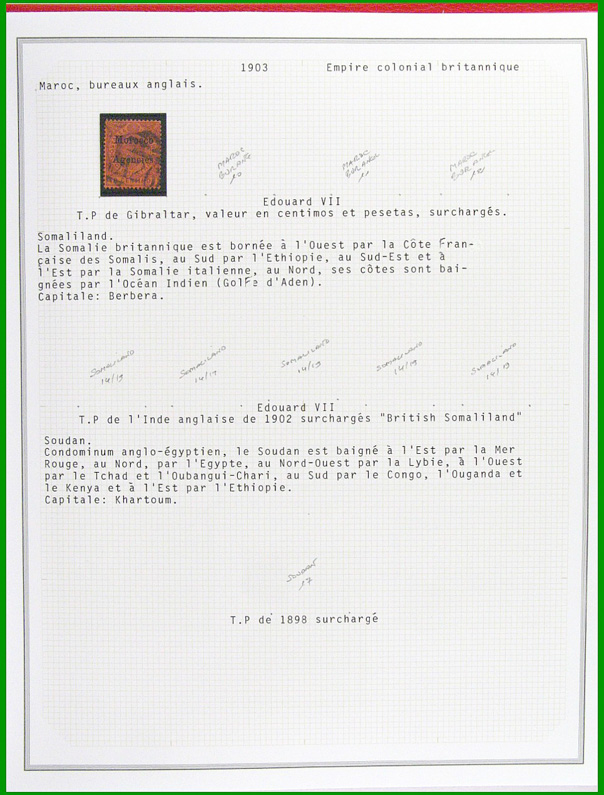 1903 Empire colonial britannique
Maroc, bureaux anglais.
Morocco
Agencies
MAROC
10
MAROC
11
MAROC
Edouard VII
T.P de Gibraltar, valeur en centimos et pesetas, surchargés.
Somaliland.
La Somalie britannique est bornée à l'Ouest par la Côte Fran-
çaise des Somalis, au Sud par l'Ethiopie, au Sud-Est et à
l'Est par la Somalie italienne, au Nord, ses côtes sont bai-
gnées par l'Océan Indien (Golfe d'Aden).
Capitale: Berbera.
SOMALILAND
14/19
SOMALILAND
14/19
SOMALILAND
14/19
SOMALILAND
14/19
SOMALILAND
14/19
Edouard VII
T.P de l'Inde anglaise de 1902 surchargés "British Somaliland"
Soudan.
Condominum anglo-égyptien, le Soudan est baigné à l'Est par la Mer
Rouge, au Nord, par l'Egypte, au Nord-Ouest par la Lybie, à l'Ouest
par le Tchad et l'Oubangui-Chari, au Sud par le Congo, l'Ouganda et
le Kenya et à l'Est par l'Ethiopie.
Capitale: Khartoum.
SOUDAN
17
T.P de 1898 surchargé